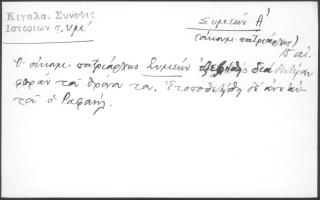 Κιγάλα, Σύνοψις
Ιστοριών σ. υμ'
Συμεών Α'
(οἰκουμ. πατριάρχης)
Ὁ οἰκουμ. πατριάρχης Συμεών διὰ δευτέραν
φορὰν τοῦ θρόνου του. Ἐτοποθετήθη δὲ ἀντ' αὐ-
τοῦ ὁ Ραφαήλ.